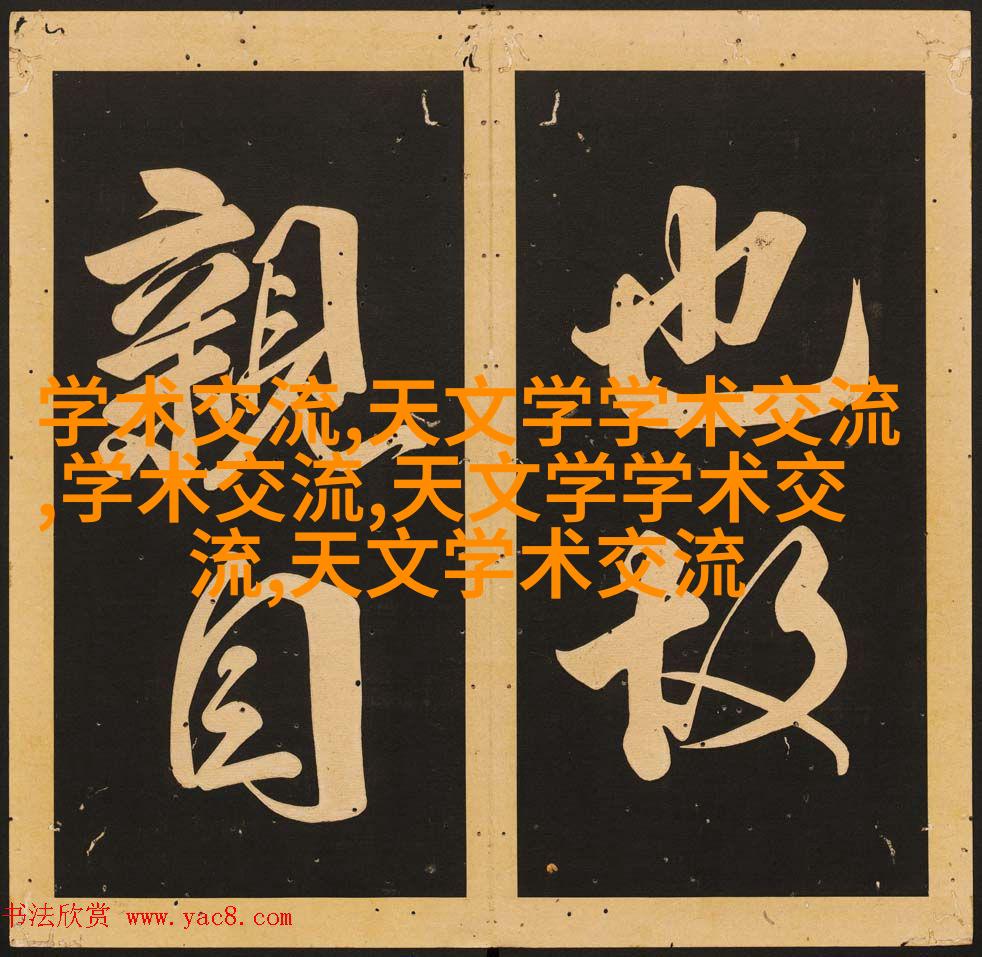 也故
親
学术交流,天文学学术交流
,学术交流,天文学学术交
流,天文学术交流
书法欣赏 www.yac8.com